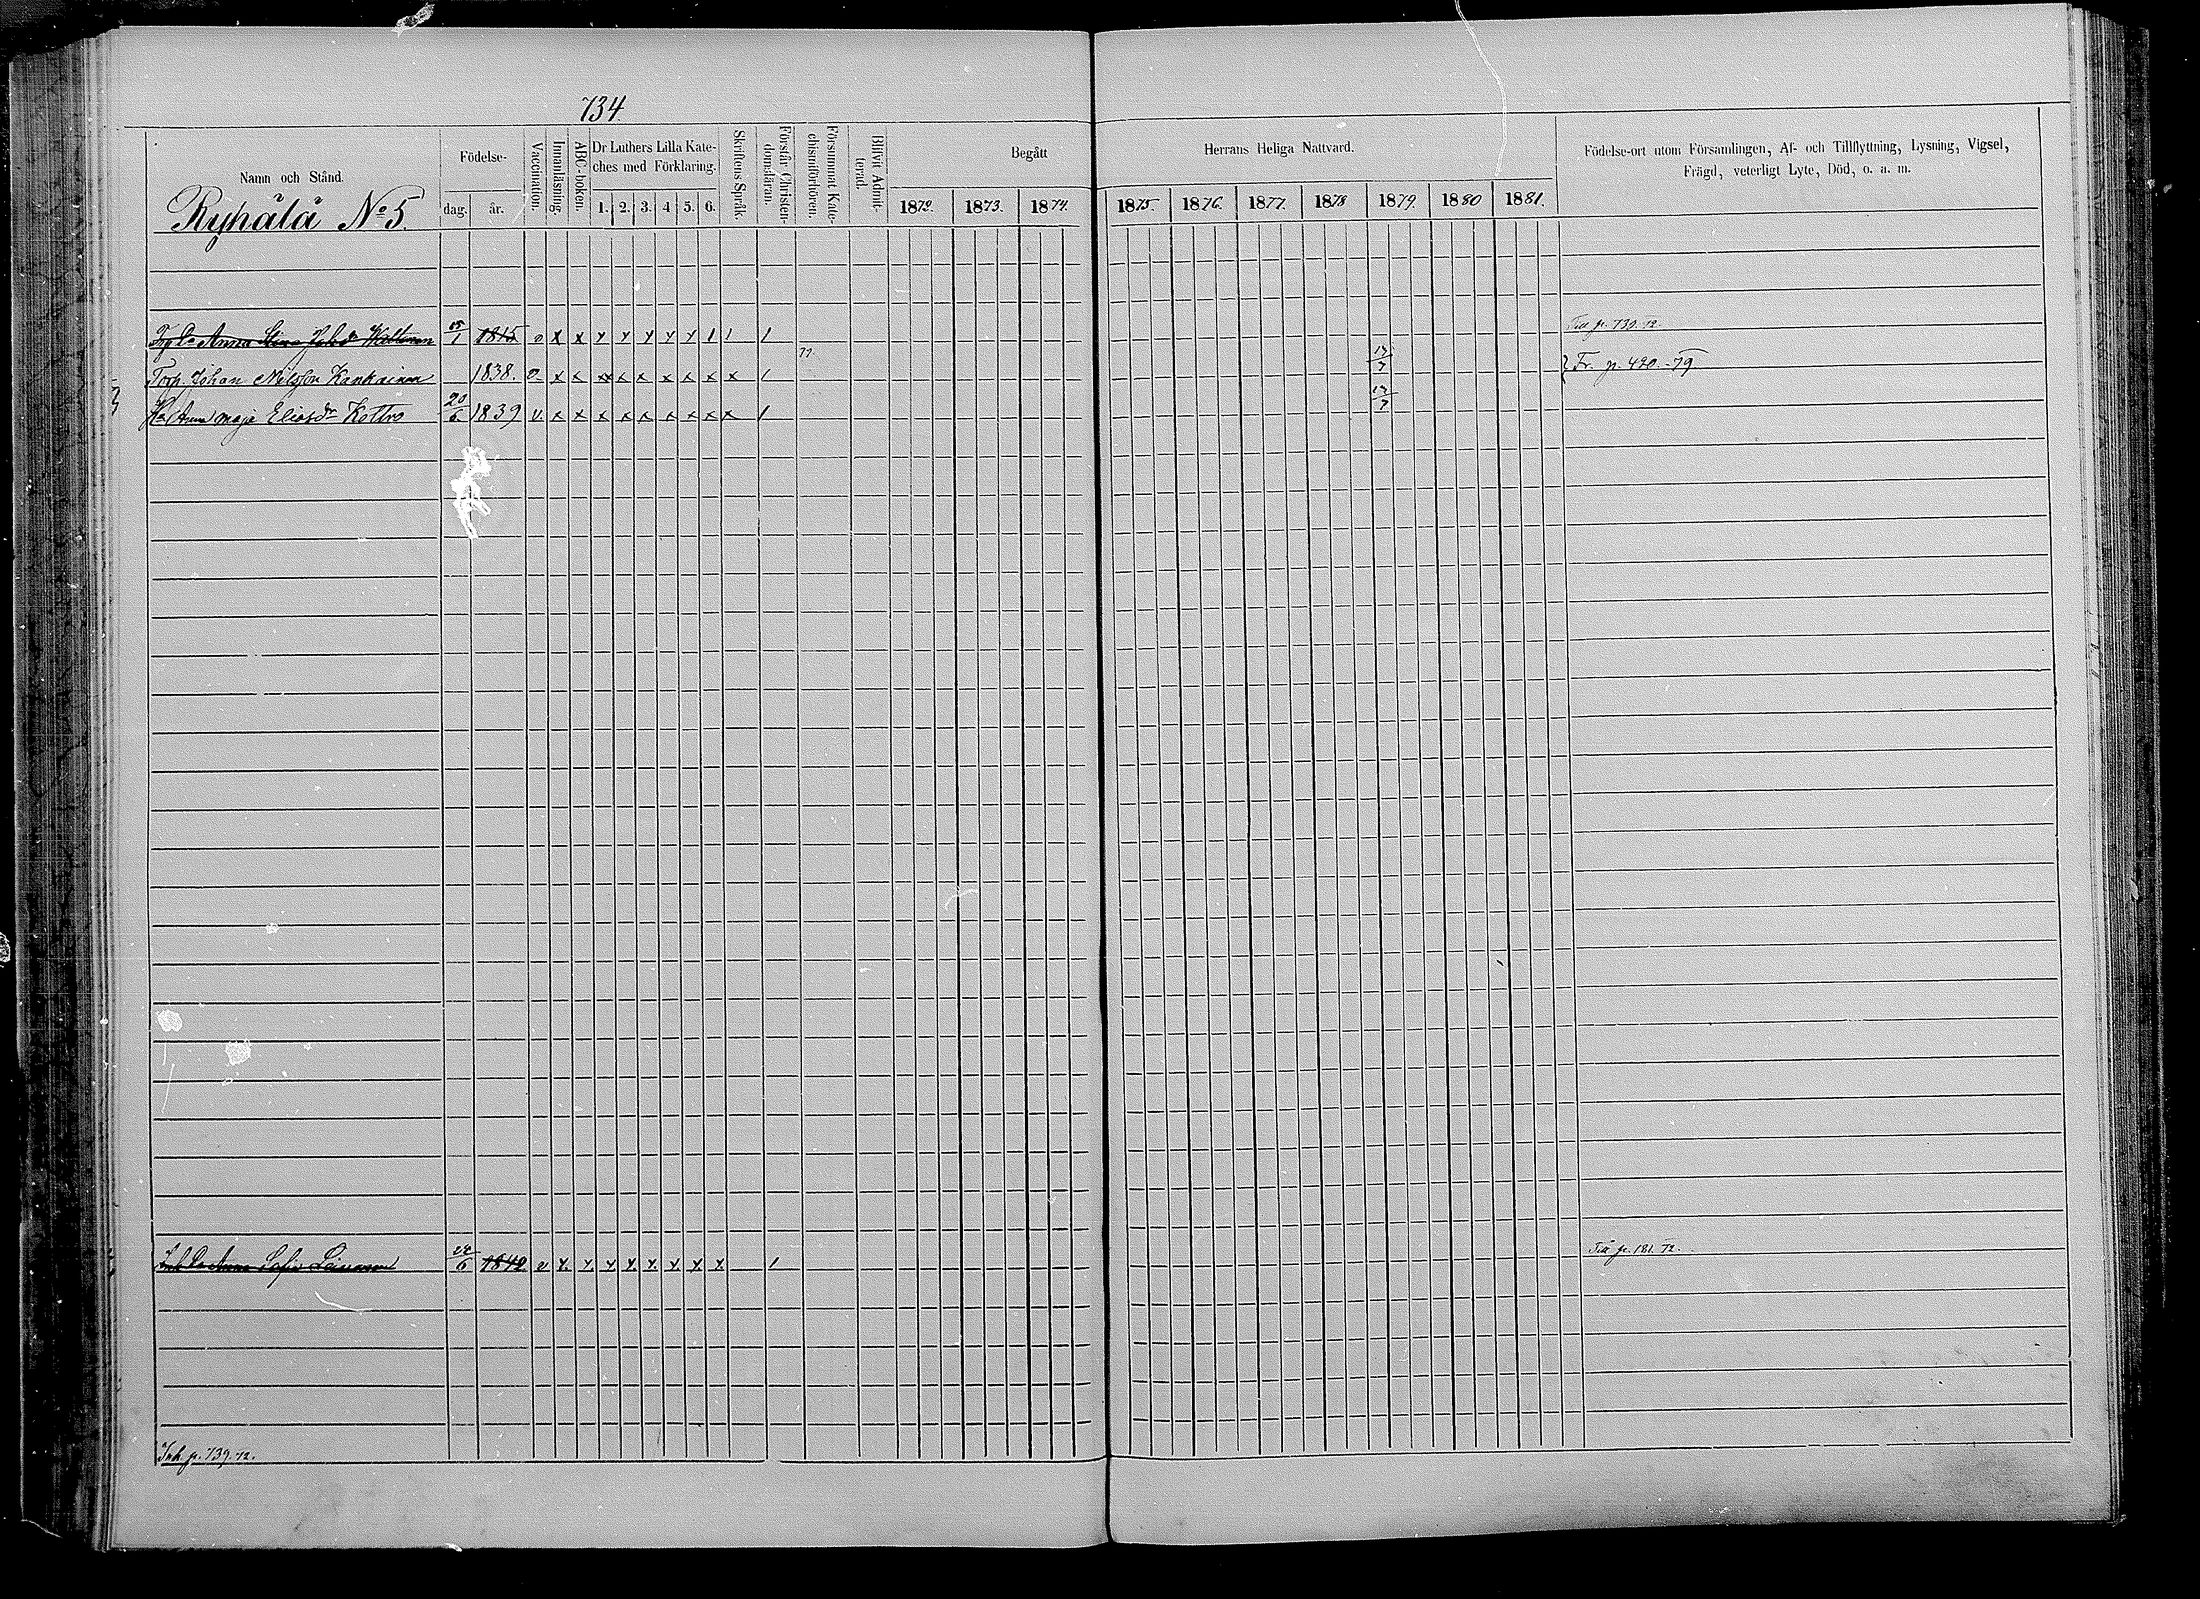 734
Namn och Stånd.
Ryhälä No 5.
Födelse-
dag. år.
Vaccination.
Innanläsning.
ABC-boken.
Dr Luthers Lilla Kate-
ches med Förklaring.
1. 2. 3. 4. 5. 6.
Skriftens Språk.
Förstår Christen-
domsläran.
Försummat Kate-
chismiförhören.
Blifvit Admit-
terad.
Begått
1872. 1873. 1874.
Herrans Heliga Nattvard.
1875. 1876. 1877. 1878 1879. 1880 1881.
Födelse-ort utom Församlingen, Af- och Tillflyttning, Lysning, Vigsel,
Frägd, veterligt Lyte, Död, o. a. m.
Anna Stina 1815 v x x y y y y y 1 1 1 Till p. 739. 72.
Torp. Johan Nilsson Kankainen 1838. v x x x x x x x x x 1 77. 13/7 Fr. p. 420. -79.
Hu Anna Maja Eliasdr Kottro 20/6 1839 v. x x x x x x x x x 1 13/7
Anna Sofia 24/6 1842 v x x x x x x x x 1 Till p. 181. 72.
Inh. p. 739. 72.